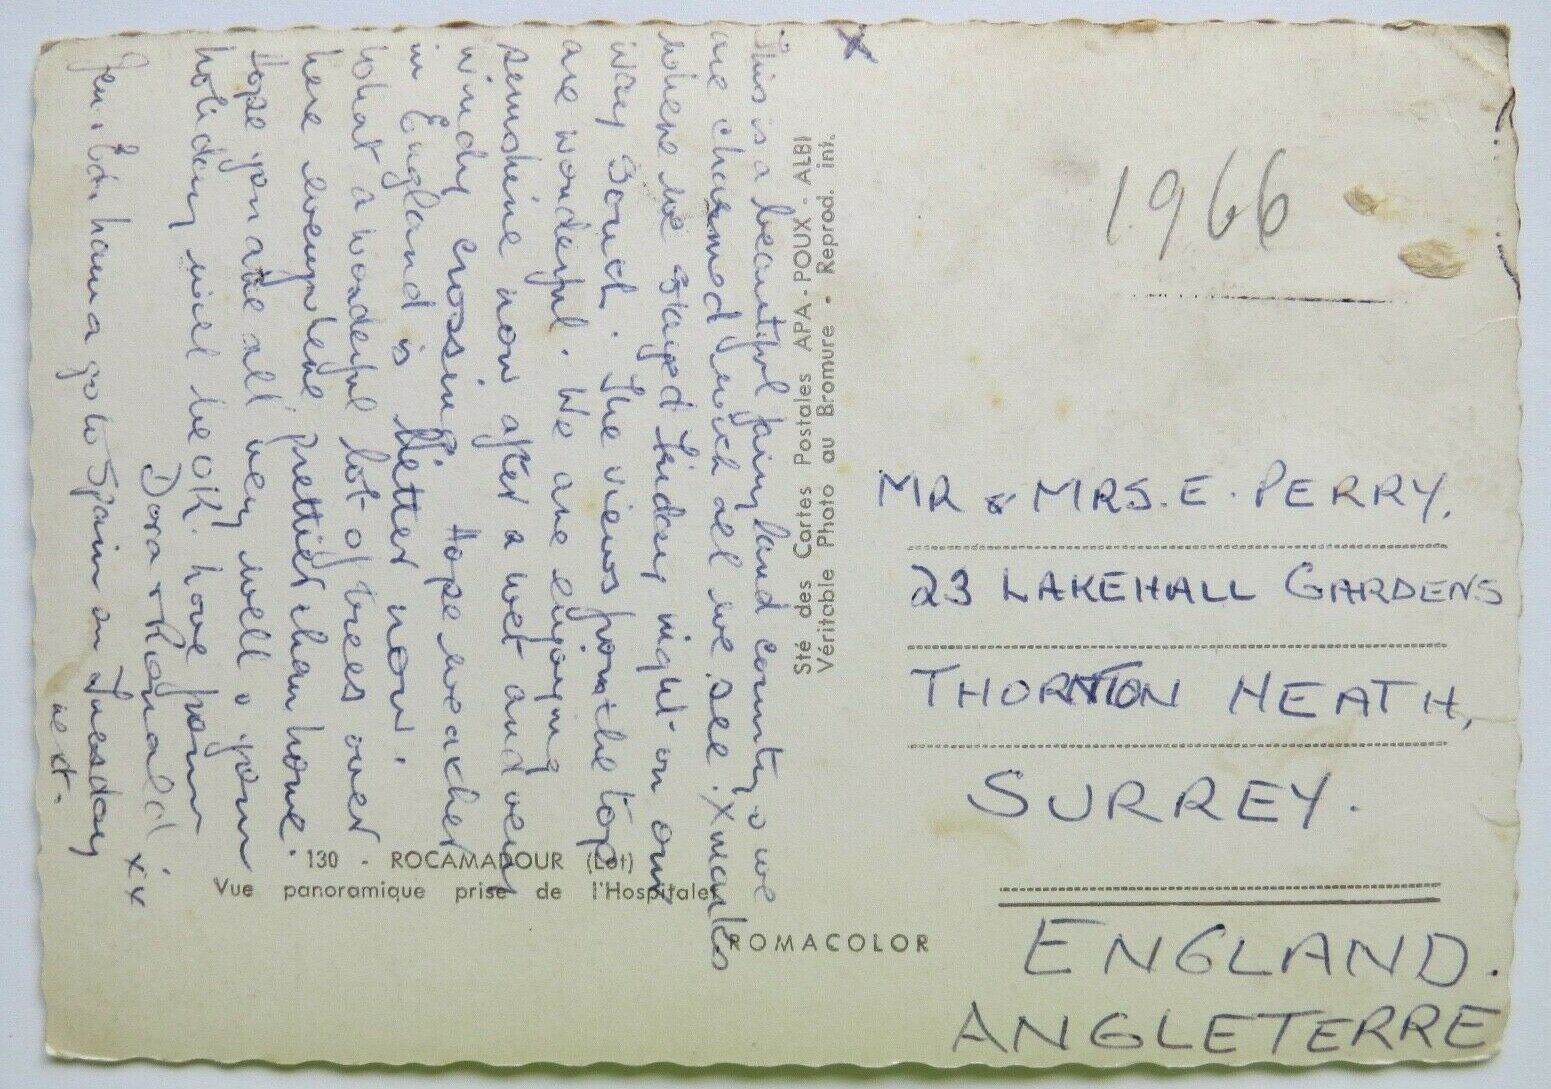 X
This is a beautiful fairy land country & we
are charmed with all we see. X marks
where we stayed Friday night on our
way South. The views from the top
are wonderful. We are enjoying
sunshine now after a wet and very
windy crossing. Hope weather
in England is better now.
What a wonderful lot of trees over
here everywhere prettier than home.
Hope you are all very well & your
holiday will be OK. have your
Dora & Ronald. xx
hama go to Spain on Tuesday
next.
Sté des Cartes Postales APA - POUX - ALBI
Véritable Photo au Bromure - Reprod. int.
130 - ROCAMADOUR (Lot)
Vue panoramique prise de l'Hospitalet
ROMACOLOR
1966
MR & MRS. E. PERRY,
23 LAKEHALL GARDENS
THORNTON HEATH,
SURREY.
ENGLAND.
ANGLETERRE